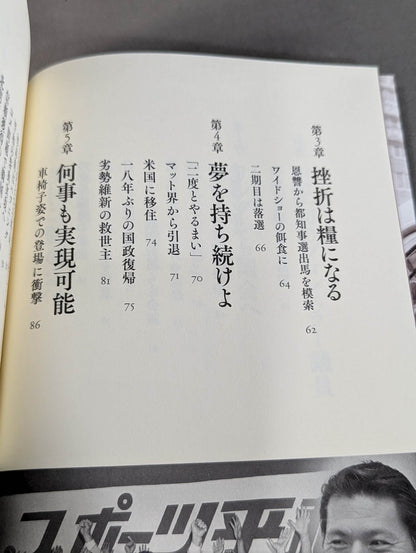 第3章 挫折は糧になる
恩讐から都知事選出馬を模索 62
ワイドショーの餌食に 64
二期目は落選 66
第4章 夢を持ち続けよ
「二度とやるまい」 70
マット界から引退 71
米国に移住 74
一八年ぶりの国政復帰 75
劣勢維新の救世主 81
第5章 何事も実現可能
車椅子姿での登場に衝撃 86
スポーツ平